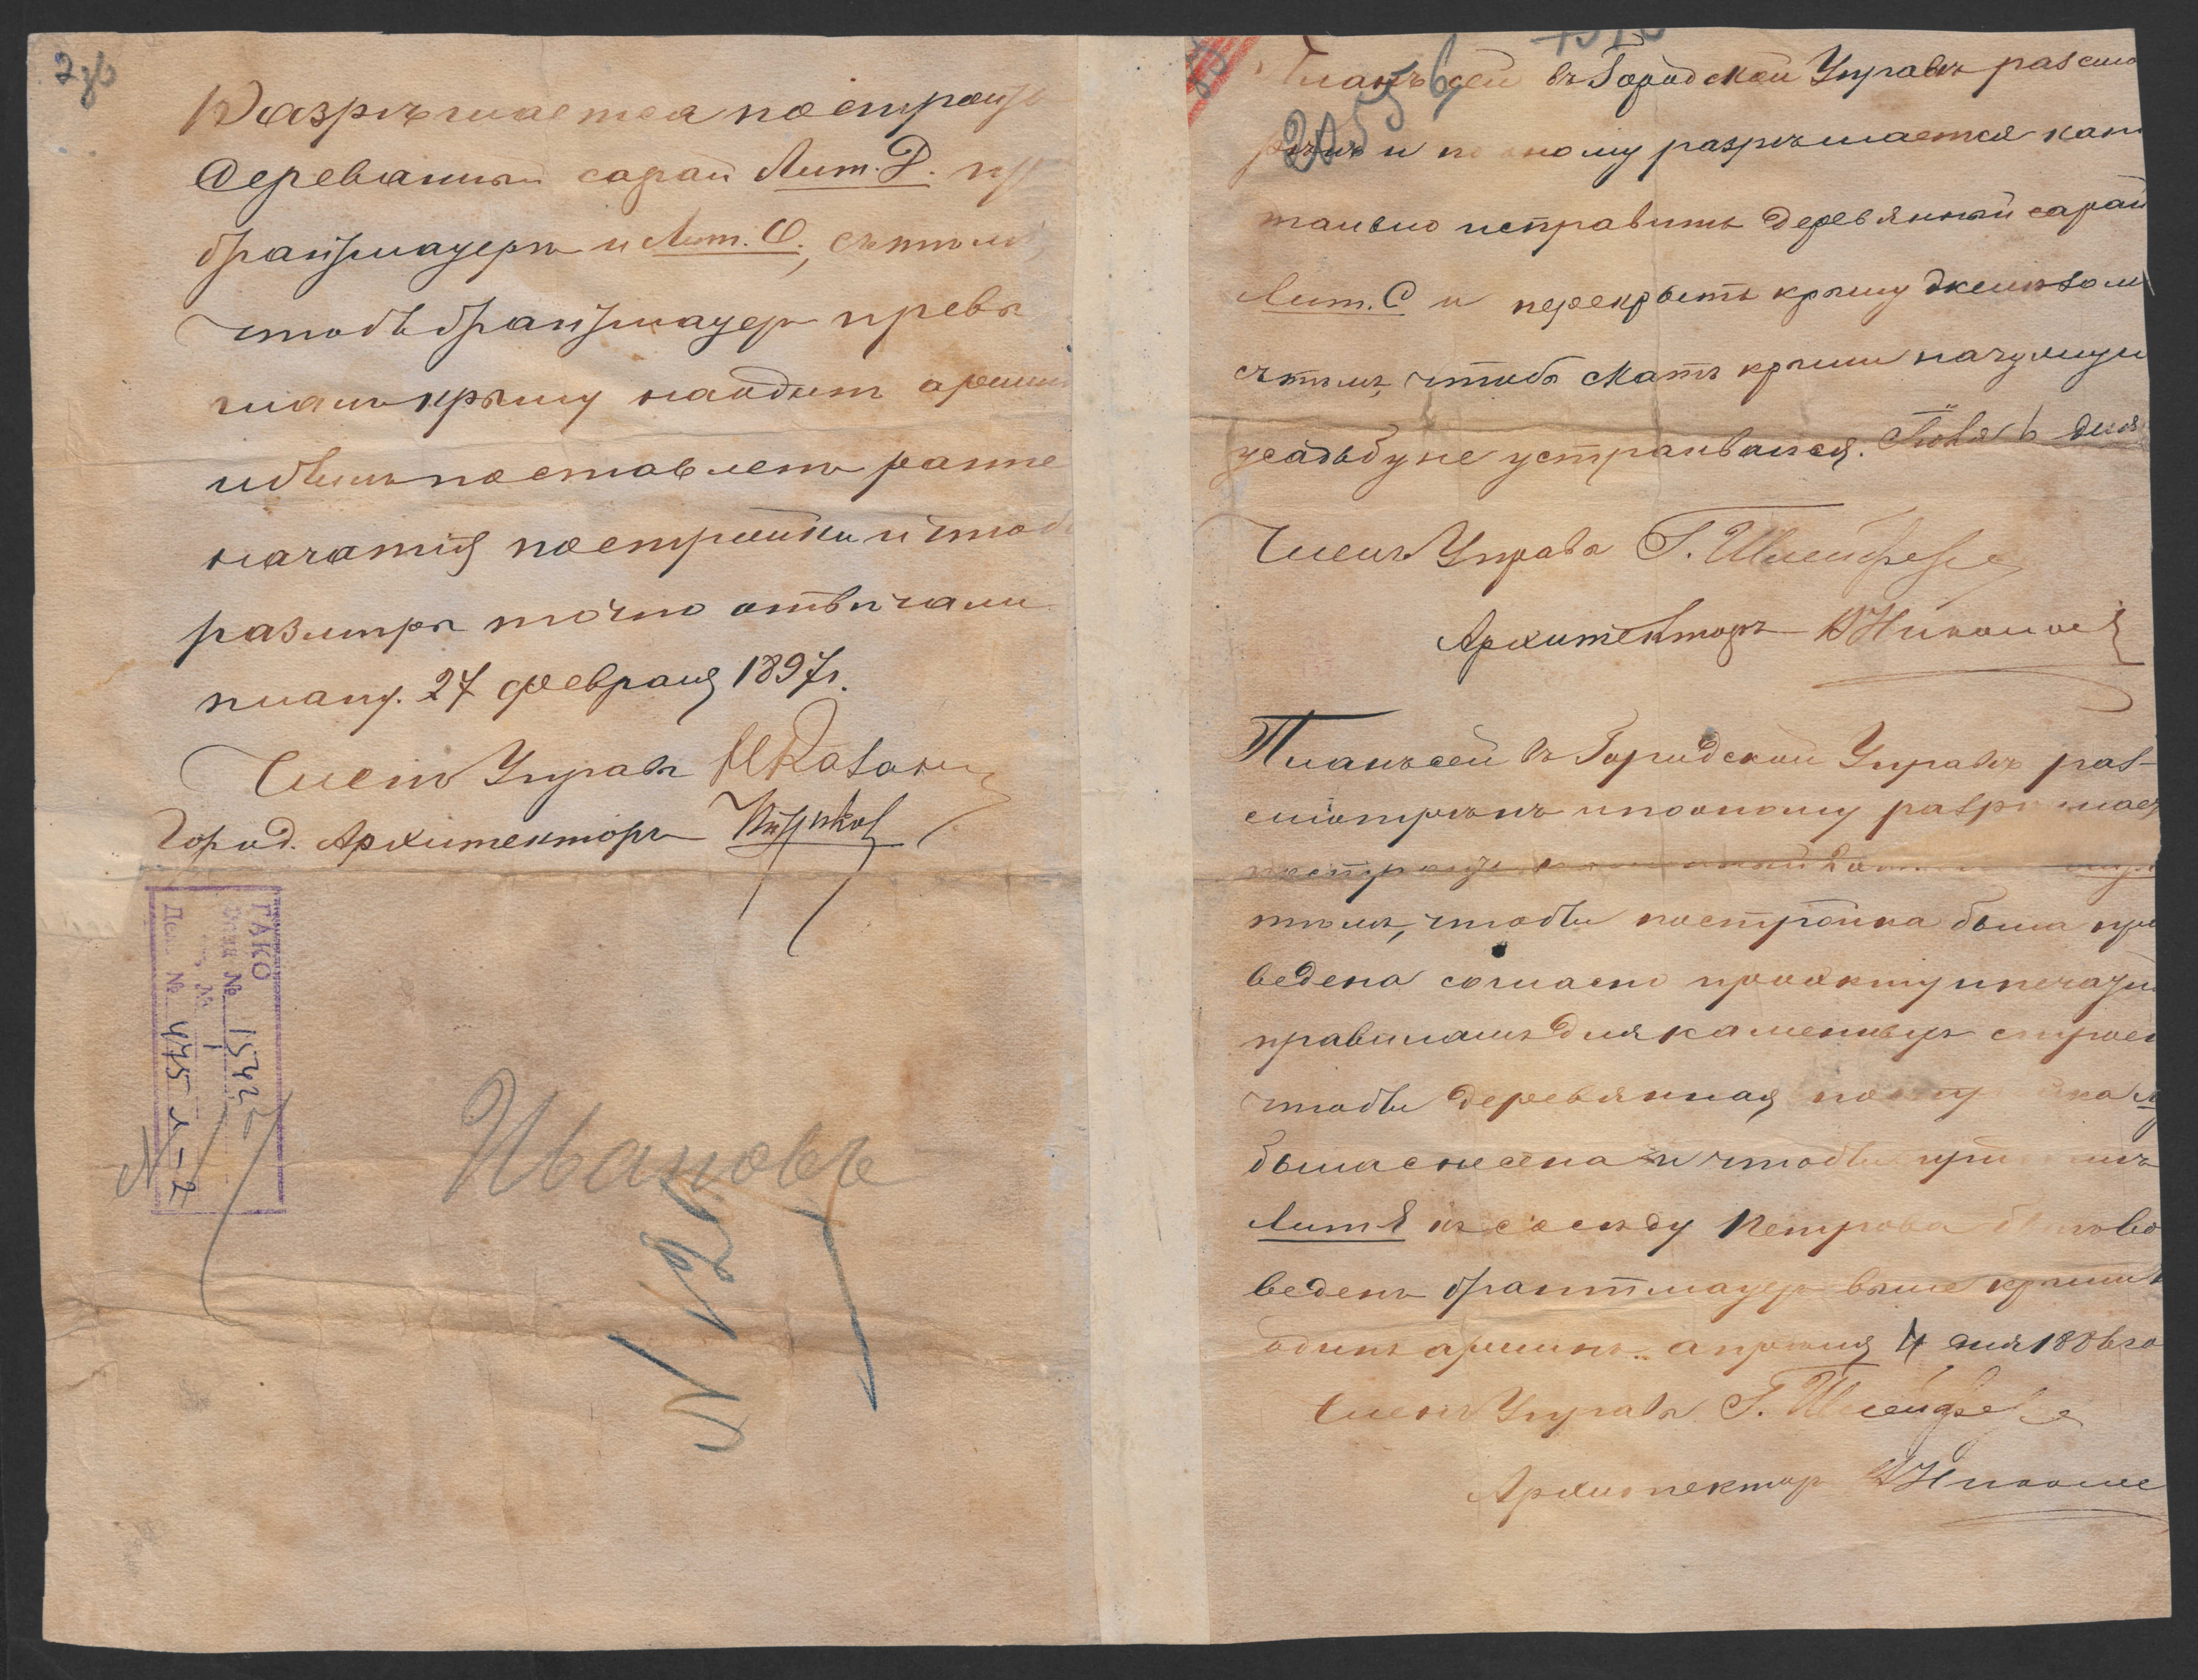 2 зв
Разрѣшается построить
деревянный сарай Лит. Д. при
брандмауерѣ и Лит. О., съ тѣмъ
чтобъ брандмауеръ превы
шалъ крышу наодинъ аршин
и былъ поставленъ ранѣе
начатия постройки и чтоб
размѣры точно отвѣчали
плану. 27 февраля 1897 г.
Членъ Управы
Город. Архитекторъ
ГАКО
№ 1542
№ 1
Дел. № 475 л-2
Ивановъ
N
2556
Планъ сей въ Городской Управѣ разсмо
трѣнъ и по оному разрѣшается капи
тально исправить деревянный сарай
Лит. С и перекрыть крышу желѣзом
съ тѣмъ, чтобы скатъ крыши на чужую
усадьбу не устраивался. Июня 6 дня
Членъ Управы Г. Шлейфер
Архитекторъ В Николаев
Планъ сей въ Городской Управѣ раз-
смотрѣнъ и по оному разрѣшает
построить
тѣмъ, чтобы постройка была про
ведена согласно проэкту и печатн
правиламъ для каменныхъ строен
чтобы деревянная постройка
была снесена и чтобы при
Лит къ сосѣду Петрова былъ во
веденъ брантмауеръ выше крыши
одинъ аршинъ. апрѣля 4 дня 1886 го
Членъ Управы Г. Шлейфер
Архитекторъ В Николае